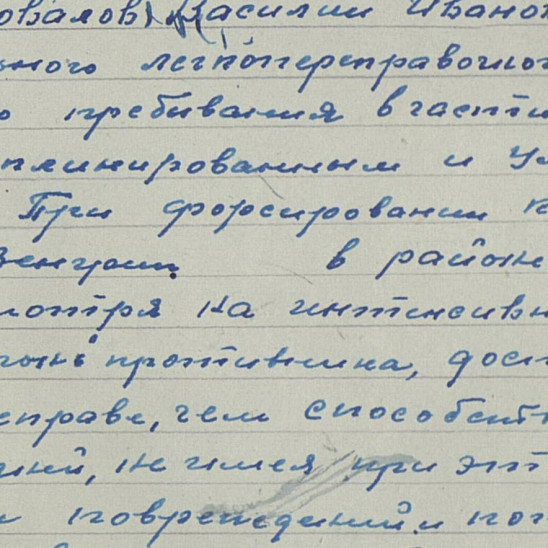 овалов) Василий Ивано
ьного легкопереправочног
о пребывания в части
плинированным и ум
При форсировании к
Венгрии в районе
мотря на интенсивн
гонь противника, дост
еправе, чем способст
ний, не имея при эт
и повреждений и пот